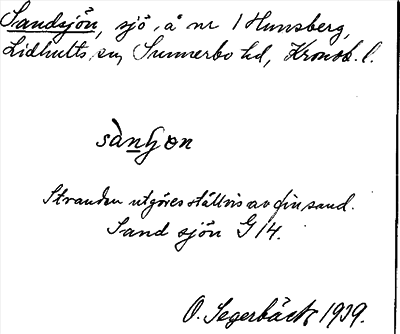 Sandsjön, sjö å nr 1 Hunsberg,
Lidhults sn, Sunnerbo hd, Kronob. l.
Stranden utgöres ställvis av fin sand.
Sand sjön G 14.
O. Segerbäck 1939.